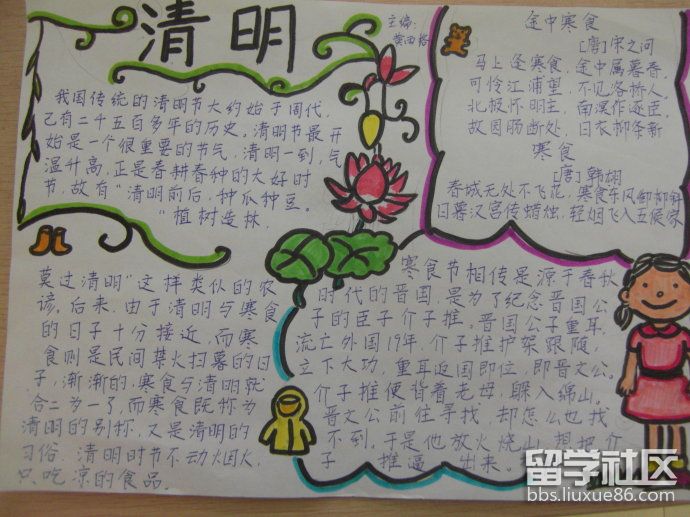 清明
主编:
我国传统的清明节大约始于周代,
已有二千五百多年的历史。清明节最开
始是一个很重要的节气,清明一到,气
温升高,正是春耕春种的大好时
节,故有“清明前后,种瓜种豆。
”“植树造林,
莫过清明”这样类似的农
谚。后来,由于清明与寒食
的日子十分接近,而寒
食则是民间禁火扫墓的日
子,渐渐的,寒食与清明就
合二为一了,而寒食既称为
清明的别称,又是清明的
习俗,清明时节不动烟火,
只吃凉的食品。
途中寒食
[唐]宋之问
马上逢寒食,途中属暮春,
可怜江浦望,不见洛桥人,
北极怀明主,南溟作逐臣,
故园肠断处,日衣柳条新
寒食
[唐]韩翃
春城无处不飞花,寒食东风御柳斜
日暮汉宫传蜡烛,轻烟飞入五侯家
寒食节相传是源于春秋
时代的晋国,是为了纪念晋国公
子的臣子介子推。晋国公子重耳,
流亡外国19年,介子推护驾跟随,
立下大功,重耳返国即位,即晋文公,
介子推便背着老母,躲入绵山。
晋文公前往寻找,却怎么也找
不到,于是他放火烧山,想把介
子推逼出来。
留学社区
bbs.liuxue86.com